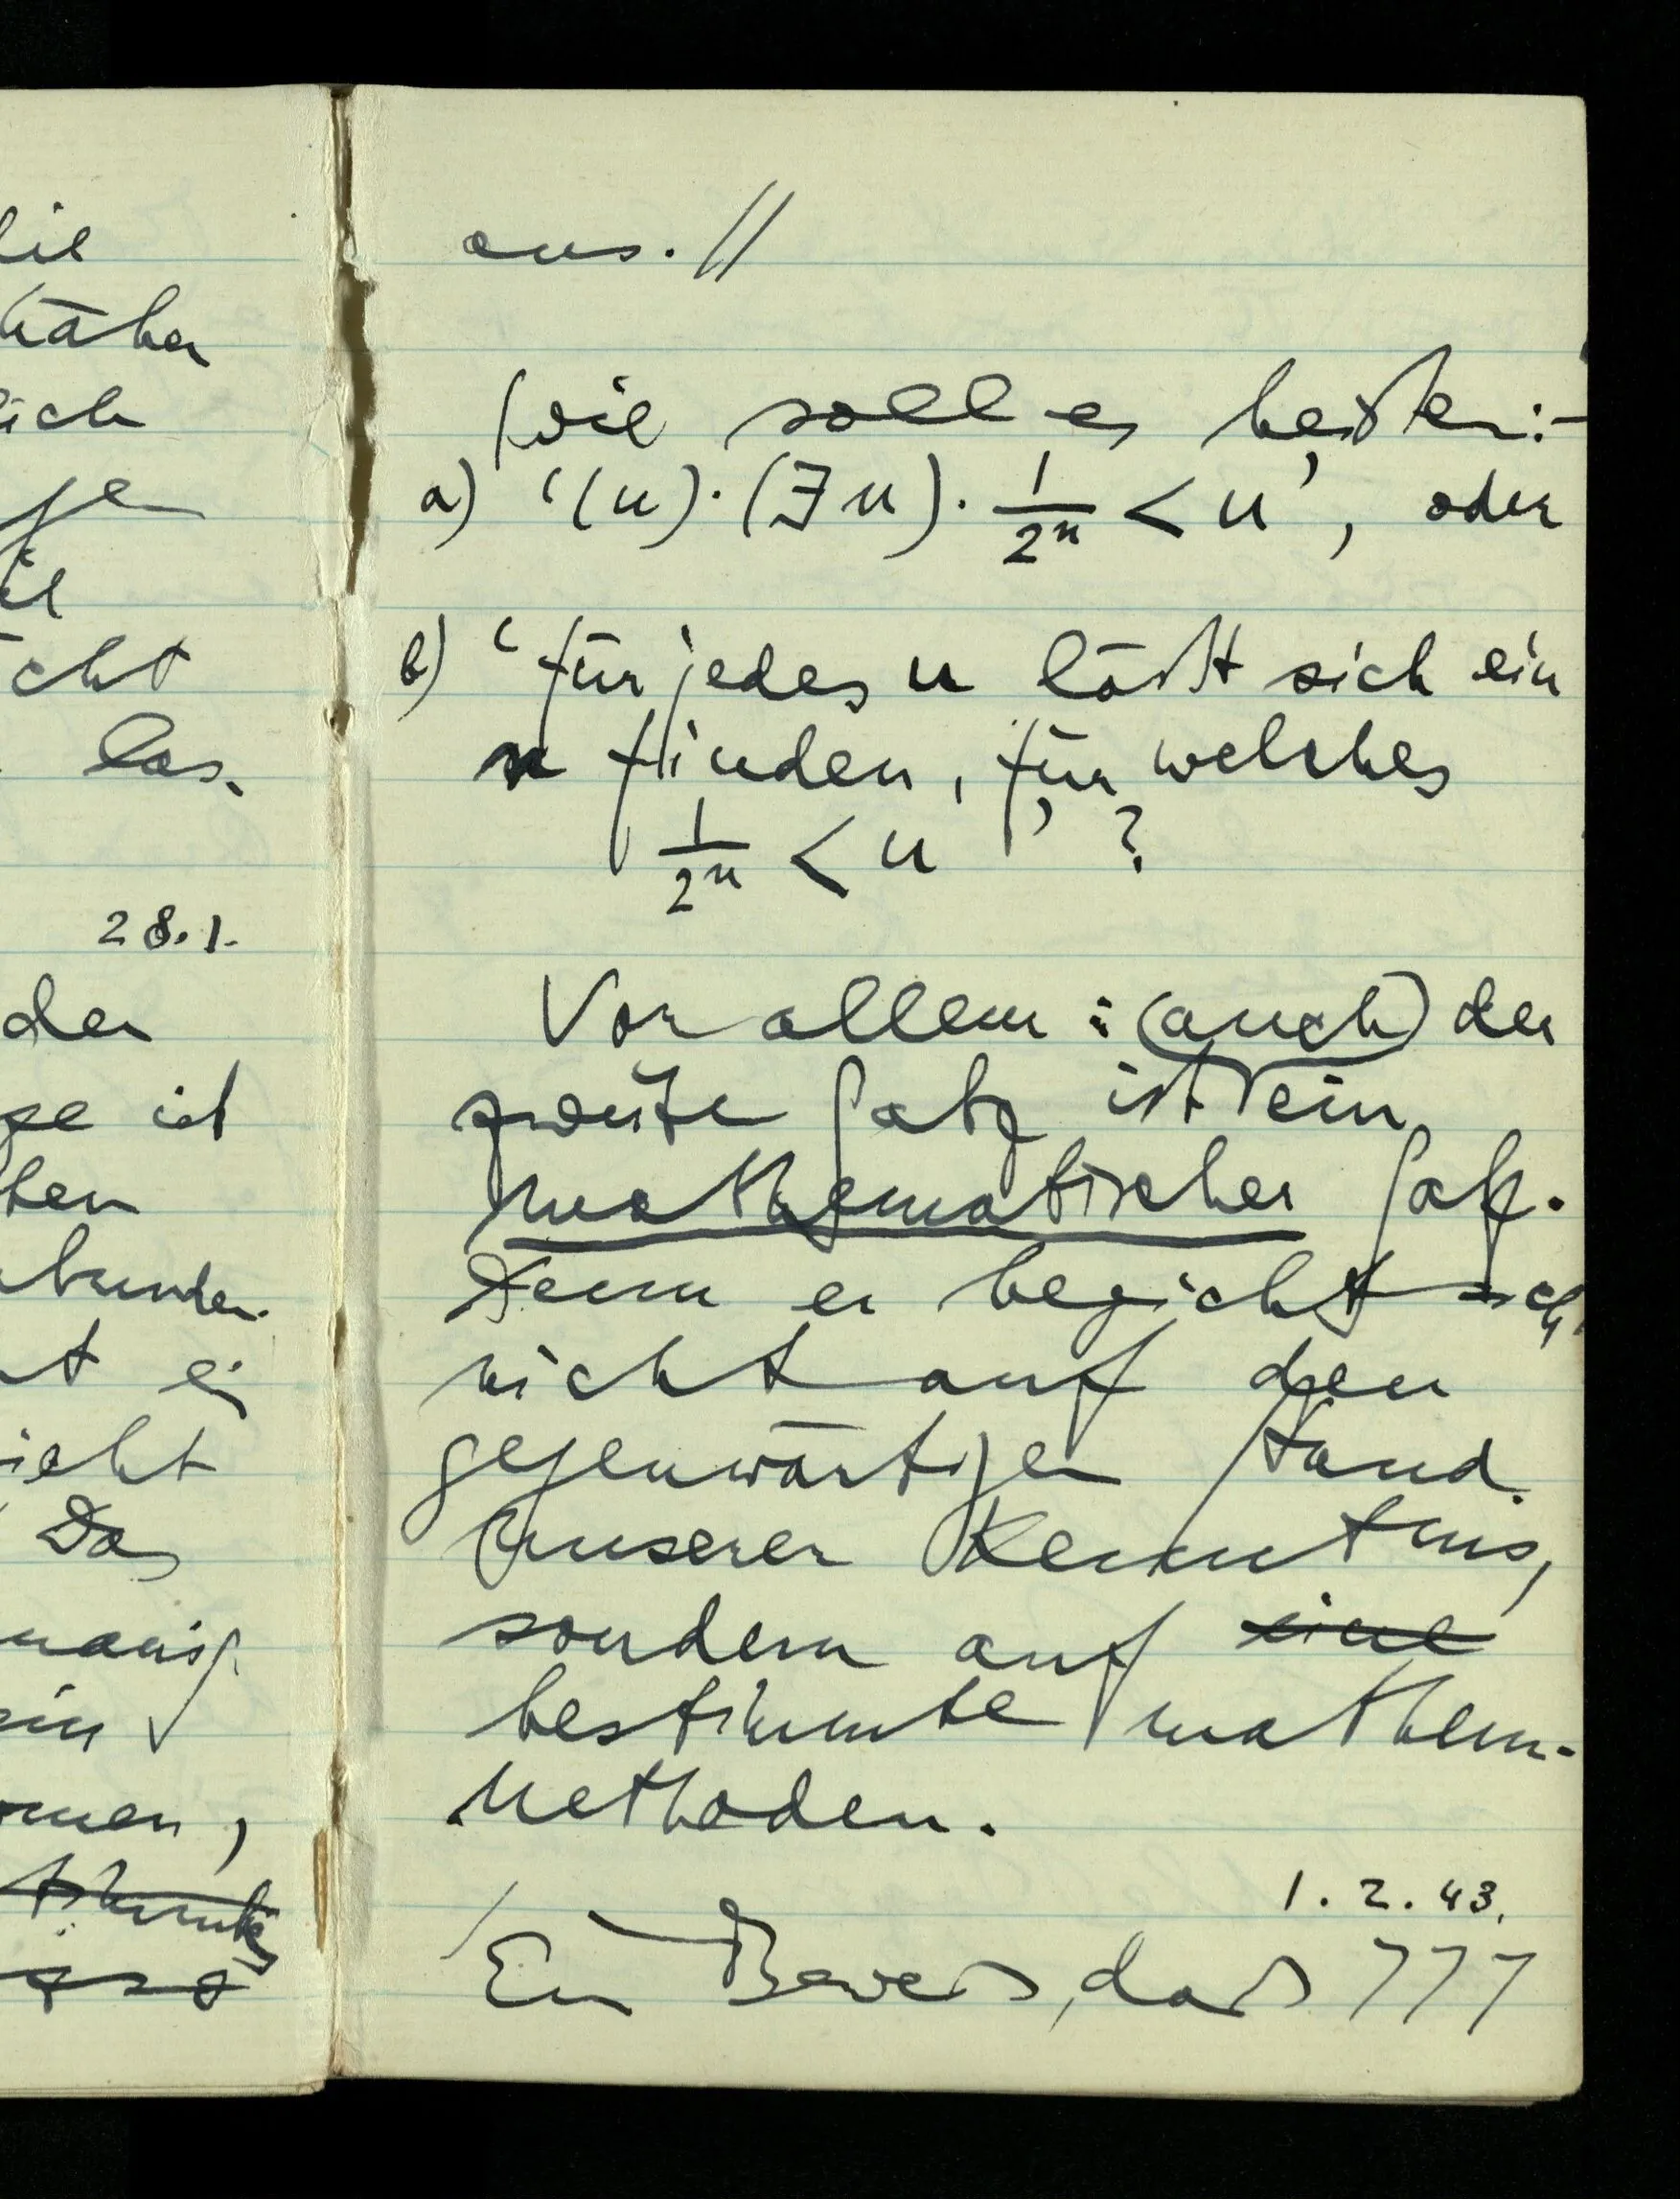 lie
näher
lich
je
cht
las.
28.1.
der
ge ist
ben
t ein
nicht
Das
ein
men,
aus. //
Wie soll es heißen:-
a) ‘(u)·(∃n)· 1/2ⁿ < u’, oder
b) ‘für jedes u läßt sich ein
n finden, für welches
1/2ⁿ < u’ ?
Vor allem : (auch) der
zweite Satz ist ein
mathematischer Satz.
Denn er bezieht sich
nicht auf den
gegenwärtigen Stand
unserer Kenntnis,
sondern auf eine
bestimmte mathem.
Methoden.
1.2.43.
/ Ein Beweis, daß 777